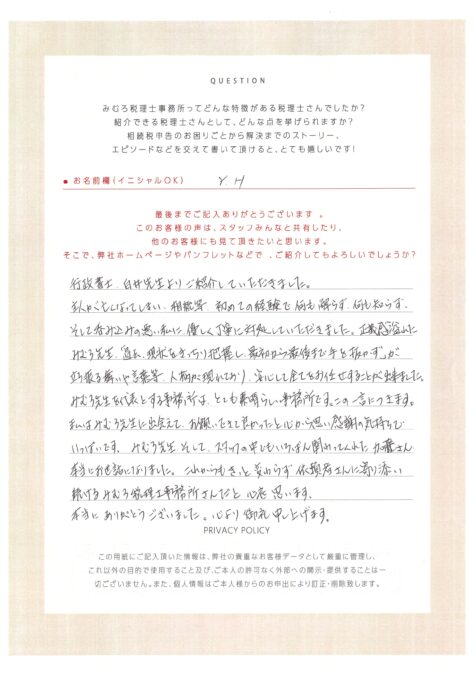 QUESTION
みむろ税理士事務所ってどんな特徴がある税理士さんでしたか?
紹介できる税理士さんとして、どんな点を挙げられますか?
相続税申告のお困りごとから解決までのストーリー、
エピソードなどを交えて書いて頂けると、とても嬉しいです!
● お名前欄(イニシャルOK) Y. H
最後までご記入ありがとうございます 。
このお客様の声は、スタッフみんなと共有したり、
他のお客様にも見て頂きたいと思います。
そこで、弊社ホームページやパンフレットなどで 、ご紹介してもよろしいでしょうか?
行政書士 白井先生よりご紹介していただきました。
主人がなってしまい、相続等 初めての経験で何も解らず、何も知らず、
そして呑み込みの悪い私に 優しく丁寧に対処していただきました。正義感溢れた
みむろ先生、現状をきっちり把握し、最初から最後まで手を抜かず、が
立ち振る舞いや言葉等、人柄が現れており、安心して全てをお任せすることが出来ました。
みむろ先生を代表とする事務所は、とても素晴らしい事務所です。この一言につきます。
私はみむろ先生に出会えて、お願いできて良かったと心から思い感謝の気持ちで
いっぱいです。みむろ先生、そして、スタッフの中でもいちばん関わってくれた 加藤さん
本当にお世話になりました。これからもきっと変わらず依頼者さんに寄り添い
続けるみむろ税理士事務所さんだと 心底 思います。
本当に ありがとうございました。心より 御礼 申し上げます。
PRIVACY POLICY
この用紙にご記入頂いた情報は、弊社の貴重なお客様データとして厳重に管理し、
これ以外の目的で使用すること及び、ご本人の許可なく外部への開示・提供することは一
切ございません。また、個人情報はご本人様からのお申出により訂正・削除致します。